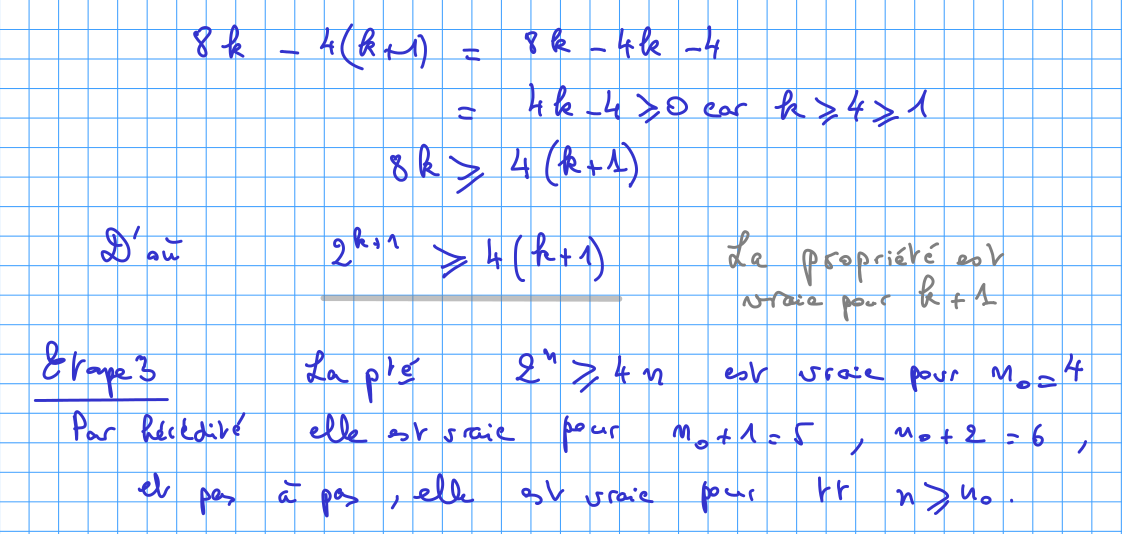 8k - 4(k+1) = 8k - 4k - 4
= 4k - 4 ⩾ 0 car k ⩾ 4 ⩾ 1
8k ⩾ 4(k+1)
D'où 2^{k+1} ⩾ 4(k+1) La propriété est
vraie pour k+1
Etape 3 La pté 2^n ⩾ 4n est vraie pour n₀ = 4
Par hérédité elle est vraie pour n₀+1 = 5, n₀+2 = 6,
et pas à pas, elle est vraie pour tt n ⩾ n₀.